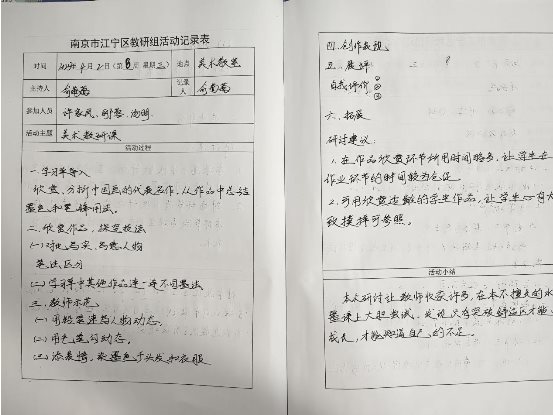 南京市江宁区教研组活动记录表
时间 2019年 月2日(第8周 星期三) 地点 美术教室
主持人 记录人
参加人员
活动主题 美术教研课
活动过程
一.学习单导入
欣赏、分析中国画的代表名作,从作品中总结
墨色和笔锋用法。
二.欣赏作品,探究技法
(一)对比写实、写意人物
笔法区分
(二)学习单中其他作品连一连不同墨法
三.教师示范
(一)用轻墨速写人物动态。
(二)用色墨勾动态。
(三)添表情,浓墨色分头发和衣服
四.创作表现
五.展评
自我评价
六.拓展
研讨建议:
1.在作品欣赏环节所用时间略多,让学生在
作业环节的时间较为仓促
2.可用欣赏少数的学生作品,让学生心有大
致摸择可参照。
活动小结
本次研讨让教师收获许多,在本不擅长的水
墨课上大胆尝试,发现只有突破舒适区才能
成长,才能知道自己的不足。